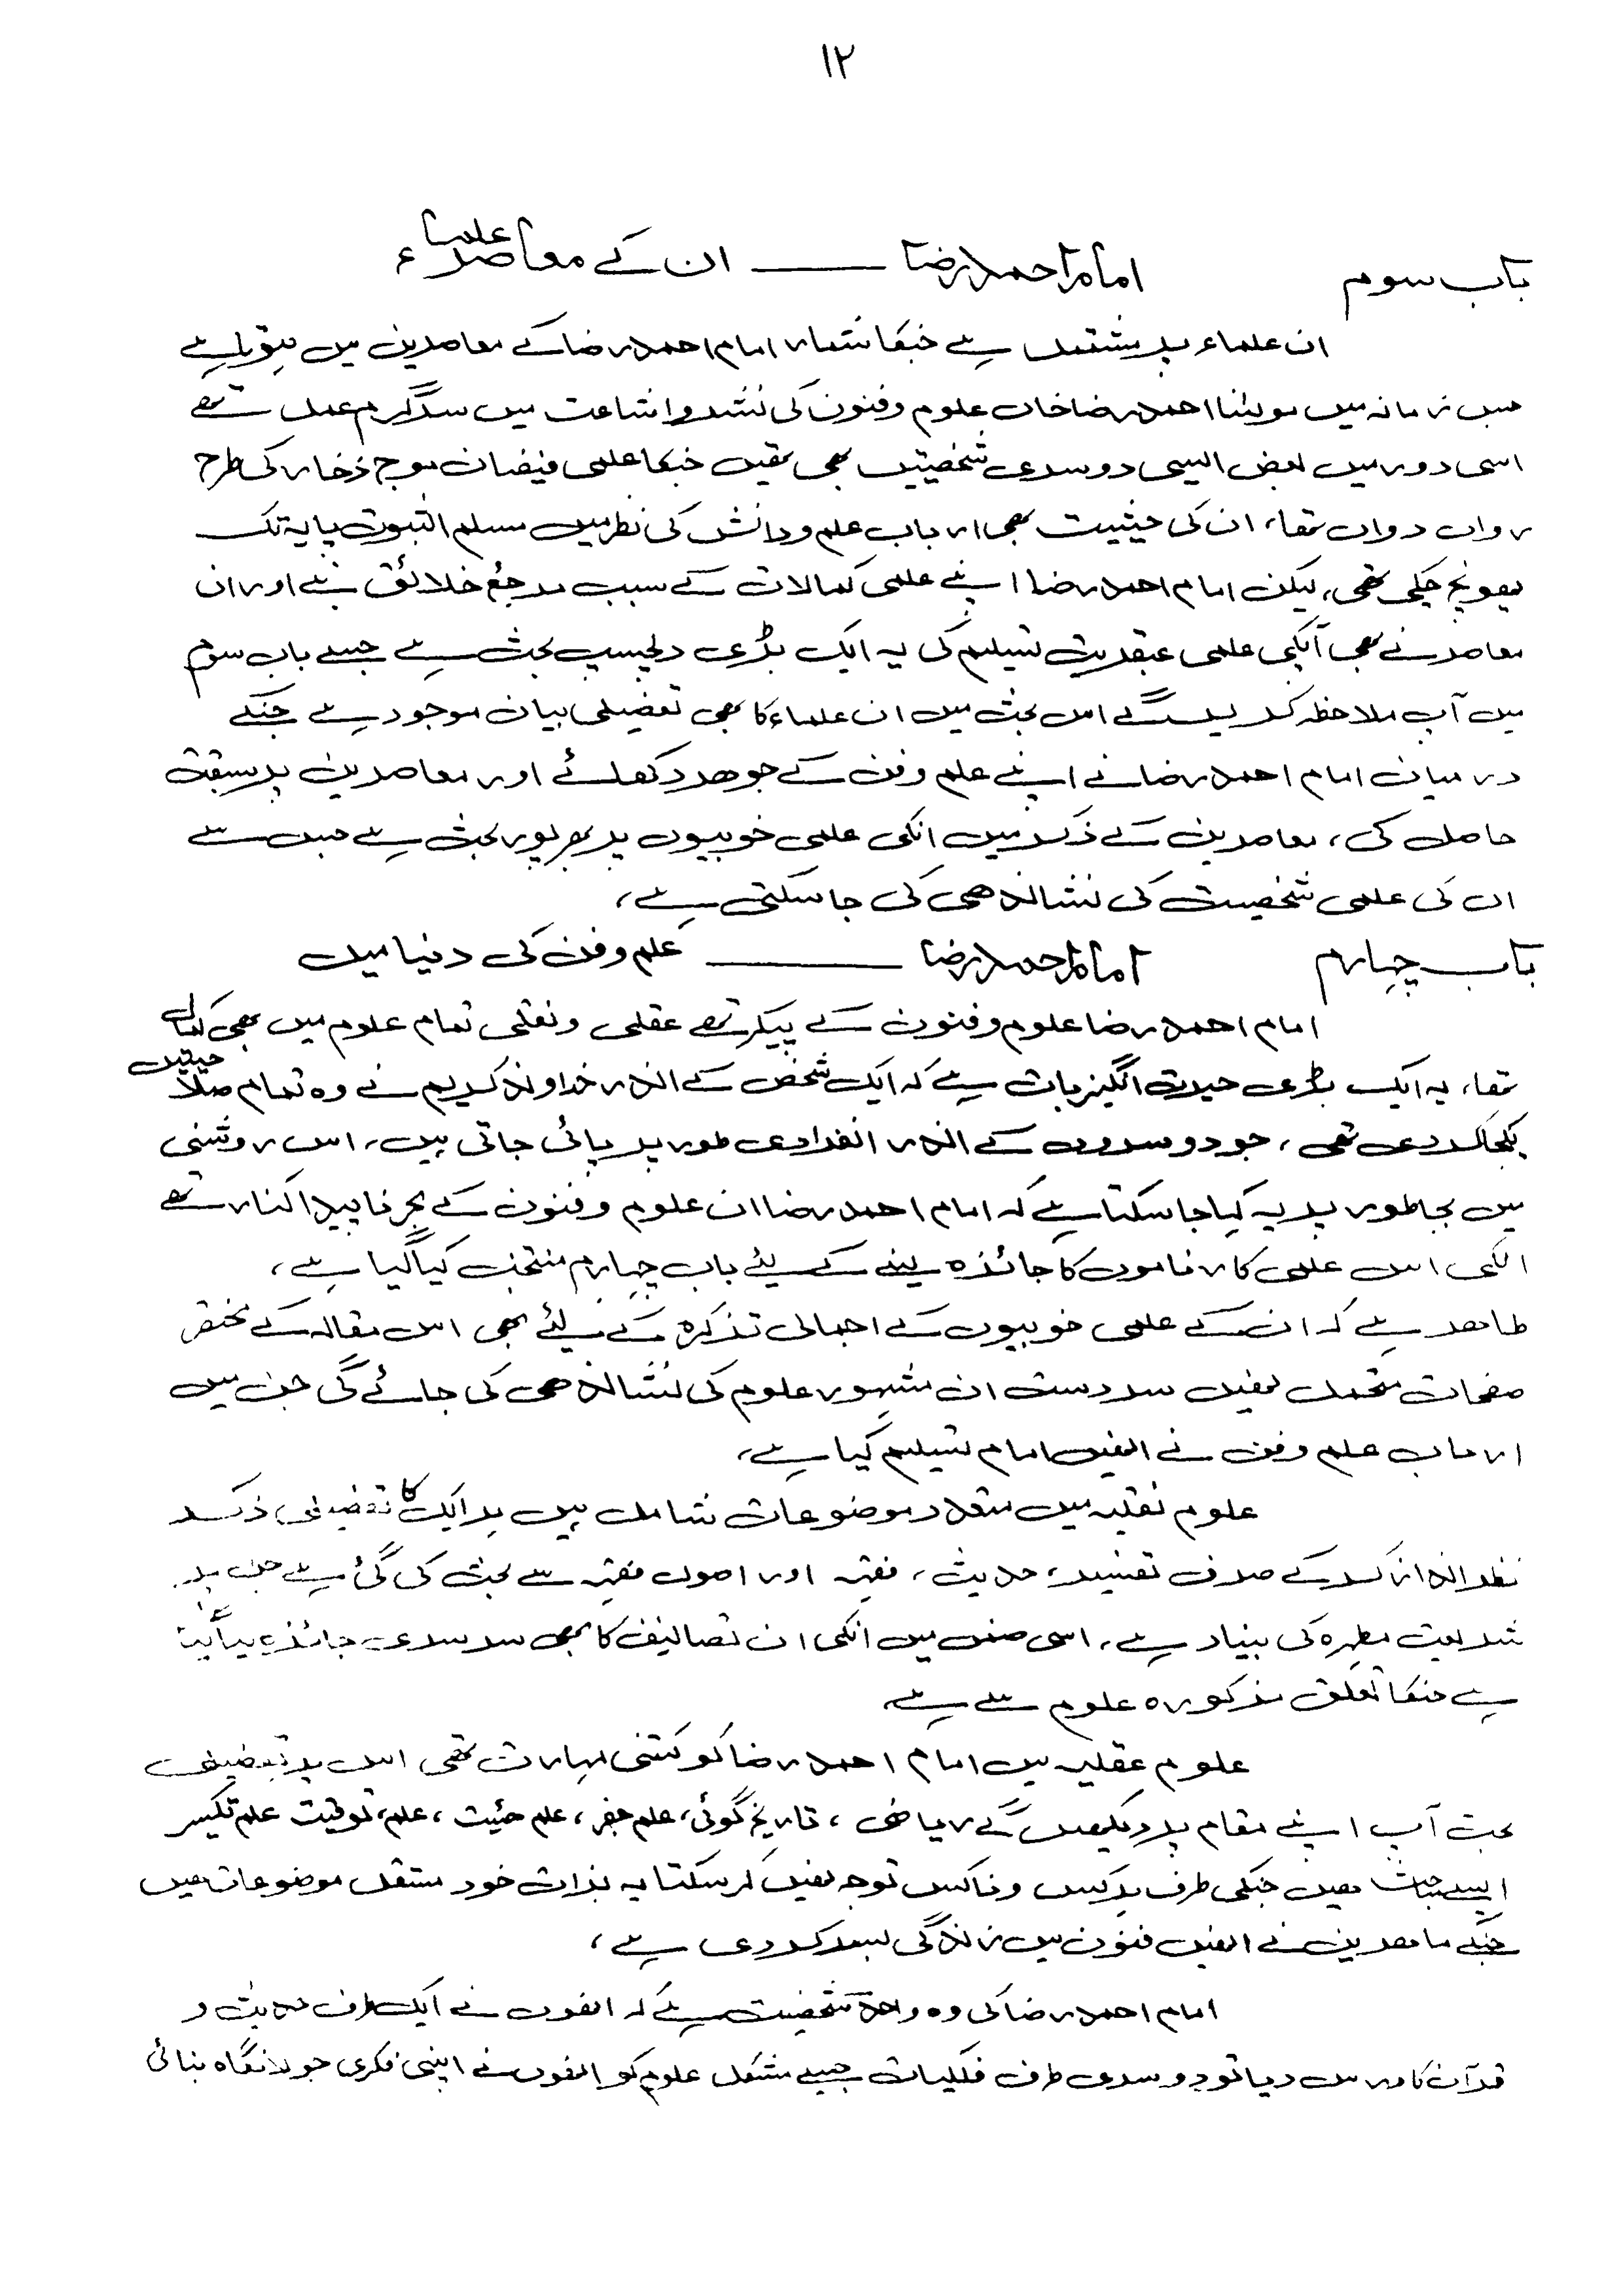 ۱۲
باب سوم امام احمد رضا ــــــ ان کے معاصر علماء
ان علماء پر مشتمل ہے جنکا شمار امام احمد رضا کے معاصرین میں ہوتا ہے
جس زمانہ میں مولینا احمد رضا خاں علوم و فنون کی نشر و اشاعت میں سرگرم عمل تھے
اسی دور میں بعض ایسی دوسری شخصیتیں بھی تھیں جنکا علمی فیضان موج ذخار کی طرح
رواں دواں تھا، ان کی حیثیت بھی ارباب علم و دانش کی نظر میں مسلم الثبوت پایہ تک
پھونچ چکی تھی، لیکن امام احمد رضا اپنے علمی کمالات کے سبب مرجع خلائق بنے اور ان
معاصر نے بھی آپکی علمی عبقریت تسلیم کی یہ ایک بڑی دلچسپ بحث ہے جسے باب سوم
میں آپ ملاحظہ کریں گے اس بحث میں ان علماء کا بھی تفصیلی بیان موجود ہے جنکے
درمیان امام احمد رضا نے اپنے علم و فن کے جوھر دکھلائے اور معاصرین پر سبقت
حاصل کی، معاصرین کے ذکر میں انکی علمی خوبیوں پر بھرپور بحث ہے جس سے
ان کی علمی شخصیت کی نشاندھی کی جا سکتی ہے،
باب چہارم امام احمد رضا ــــــ علم و فن کی دنیا میں
امام احمد رضا علوم و فنون کے پیکر تھے عقلی و نقلی تمام علوم میں بھی کمال
تھا، یہ ایک بڑی حیرت انگیز بات ہے کہ ایک شخص کے اندر خداوند کریم نے وہ تمام صلاحیتیں
یکجا کر دی تھی، جو دوسروں کے اندر انفرادی طور پر پائی جاتی ہیں، اس روشنی
میں بجا طور پر یہ کہا جا سکتا ہے کہ امام احمد رضا ان علوم و فنون کے بحر ناپیدا کنار تھے
انکی اس علمی کارناموں کا جائزہ لینے کے لیئے باب چہارم منتخب کیا گیا ہے،
ظاھر ہے کہ ان کے علمی خوبیوں کے اجمالی تذکرہ کے لیئے بھی اس مقالہ کے مختصر
صفحات متحمل نھیں سردست ان مشہور علوم کی نشاندھی کی جائے گی جن میں
ارباب علم و فن نے انھیں امام تسلیم کیا ہے،
علوم نقلیہ میں متعدد موضوعات شامل ہیں ہر ایک کا تفصیلی ذکر
نظر انداز کر کے صرف تفسیر، حدیث، فقہ اور اصول فقہ سے بحث کی گئی ہے جن پر
شریعت مطہرہ کی بنیاد ہے، اسی ضمن میں انکی ان تصانیف کا بھی سرسری جائزہ لیا گیا
ہے جنکا تعلق مذکورہ علوم سے ہے
علوم عقلیہ میں امام احمد رضا کو کتنی مہارت تھی اس پر تفصیلی
بحث آپ اپنے مقام پر دیکھیں گے ریاضی، تاریخ گوئی، علم جفر، علم ھئیت، علم توقیت علم تکسیر
ایسے مباحث ھیں جنکی طرف ہر کس و ناکس توجہ نھیں کر سکتا یہ بذات خود مستقل موضوعات ھیں
جنکے ماھرین نے انھیں فنون میں زندگی بسر کر دی ہے،
امام احمد رضا کی وہ واحد شخصیت ہے کہ انھوں نے ایک طرف حدیث و
قرآن کا درس دیا تو دوسری طرف فلکیات جیسے مشکل علوم کو انھوں نے اپنی فکری جولانگاہ بنائی